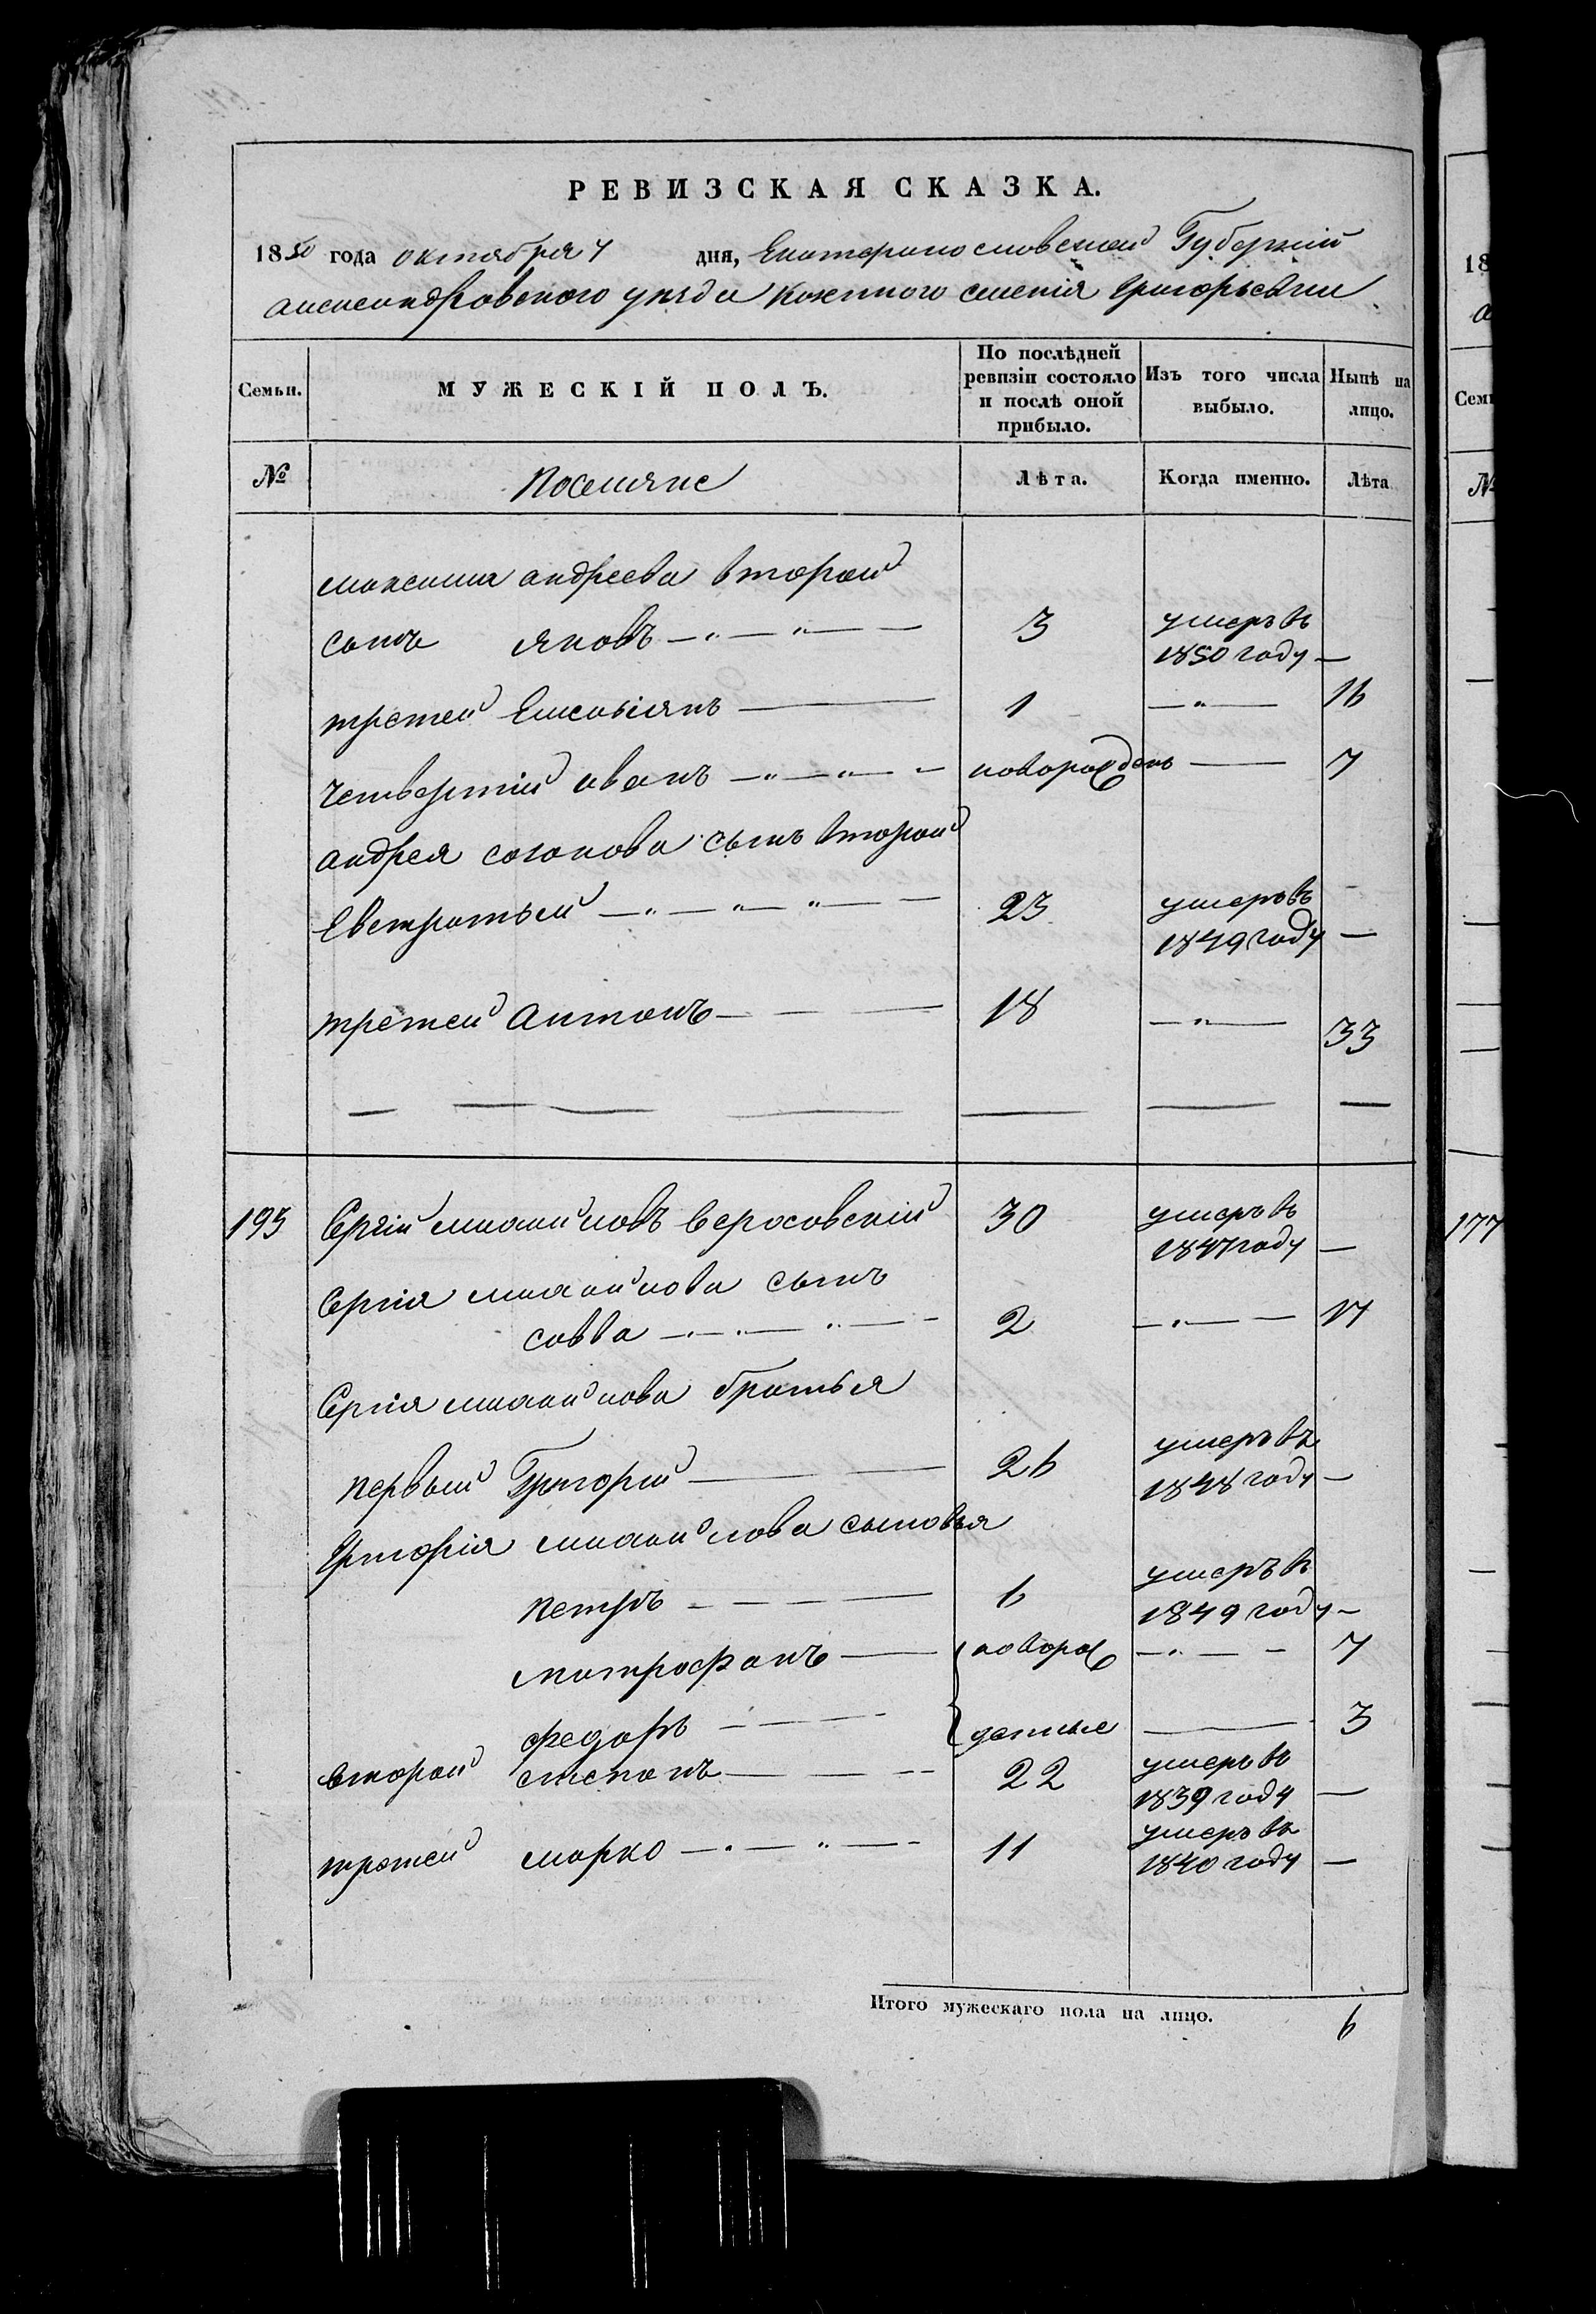 РЕВИЗСКАЯ СКАЗКА.
1850 года октября 4 дня, Екатеринославской Губернии
александровского уезда казенного селения Григорьевки
Семьи.
МУЖЕСКІЙ ПОЛЪ.
По послѣдней ревизіи состояло и послѣ оной прибыло.
Изъ того числа выбыло.
Нынѣ на лицо.
№
Поселяне
Лѣта.
Когда именно.
Лѣта
максима андреева второй
сынъ яковъ 3 умеръ въ
1850 году —
третей Емельянъ 1 — 16
четвертий иванъ новорожденъ — 7
андрея созонова сынъ второй
Евстратый 23 умеръ въ
1849 году —
третей антонъ 18 — 33
195 Сергій михайловъ 30 умеръ въ
1847 году —
Сергія михайлова сынъ
савва 2 — 17
Сергія михайлова братья
первый Григорий 26 умеръ въ
1848 году —
Григорія михайлова сыновья
петръ 6 умеръ въ
1849 году —
митрофанъ новорож — 7
федоръ денные — 3
второй степанъ 22 умеръ въ
1839 году —
третей марко 11 умеръ въ
1840 году —
Итого мужескаго пола на лицо. 6
18
Семь
№
177